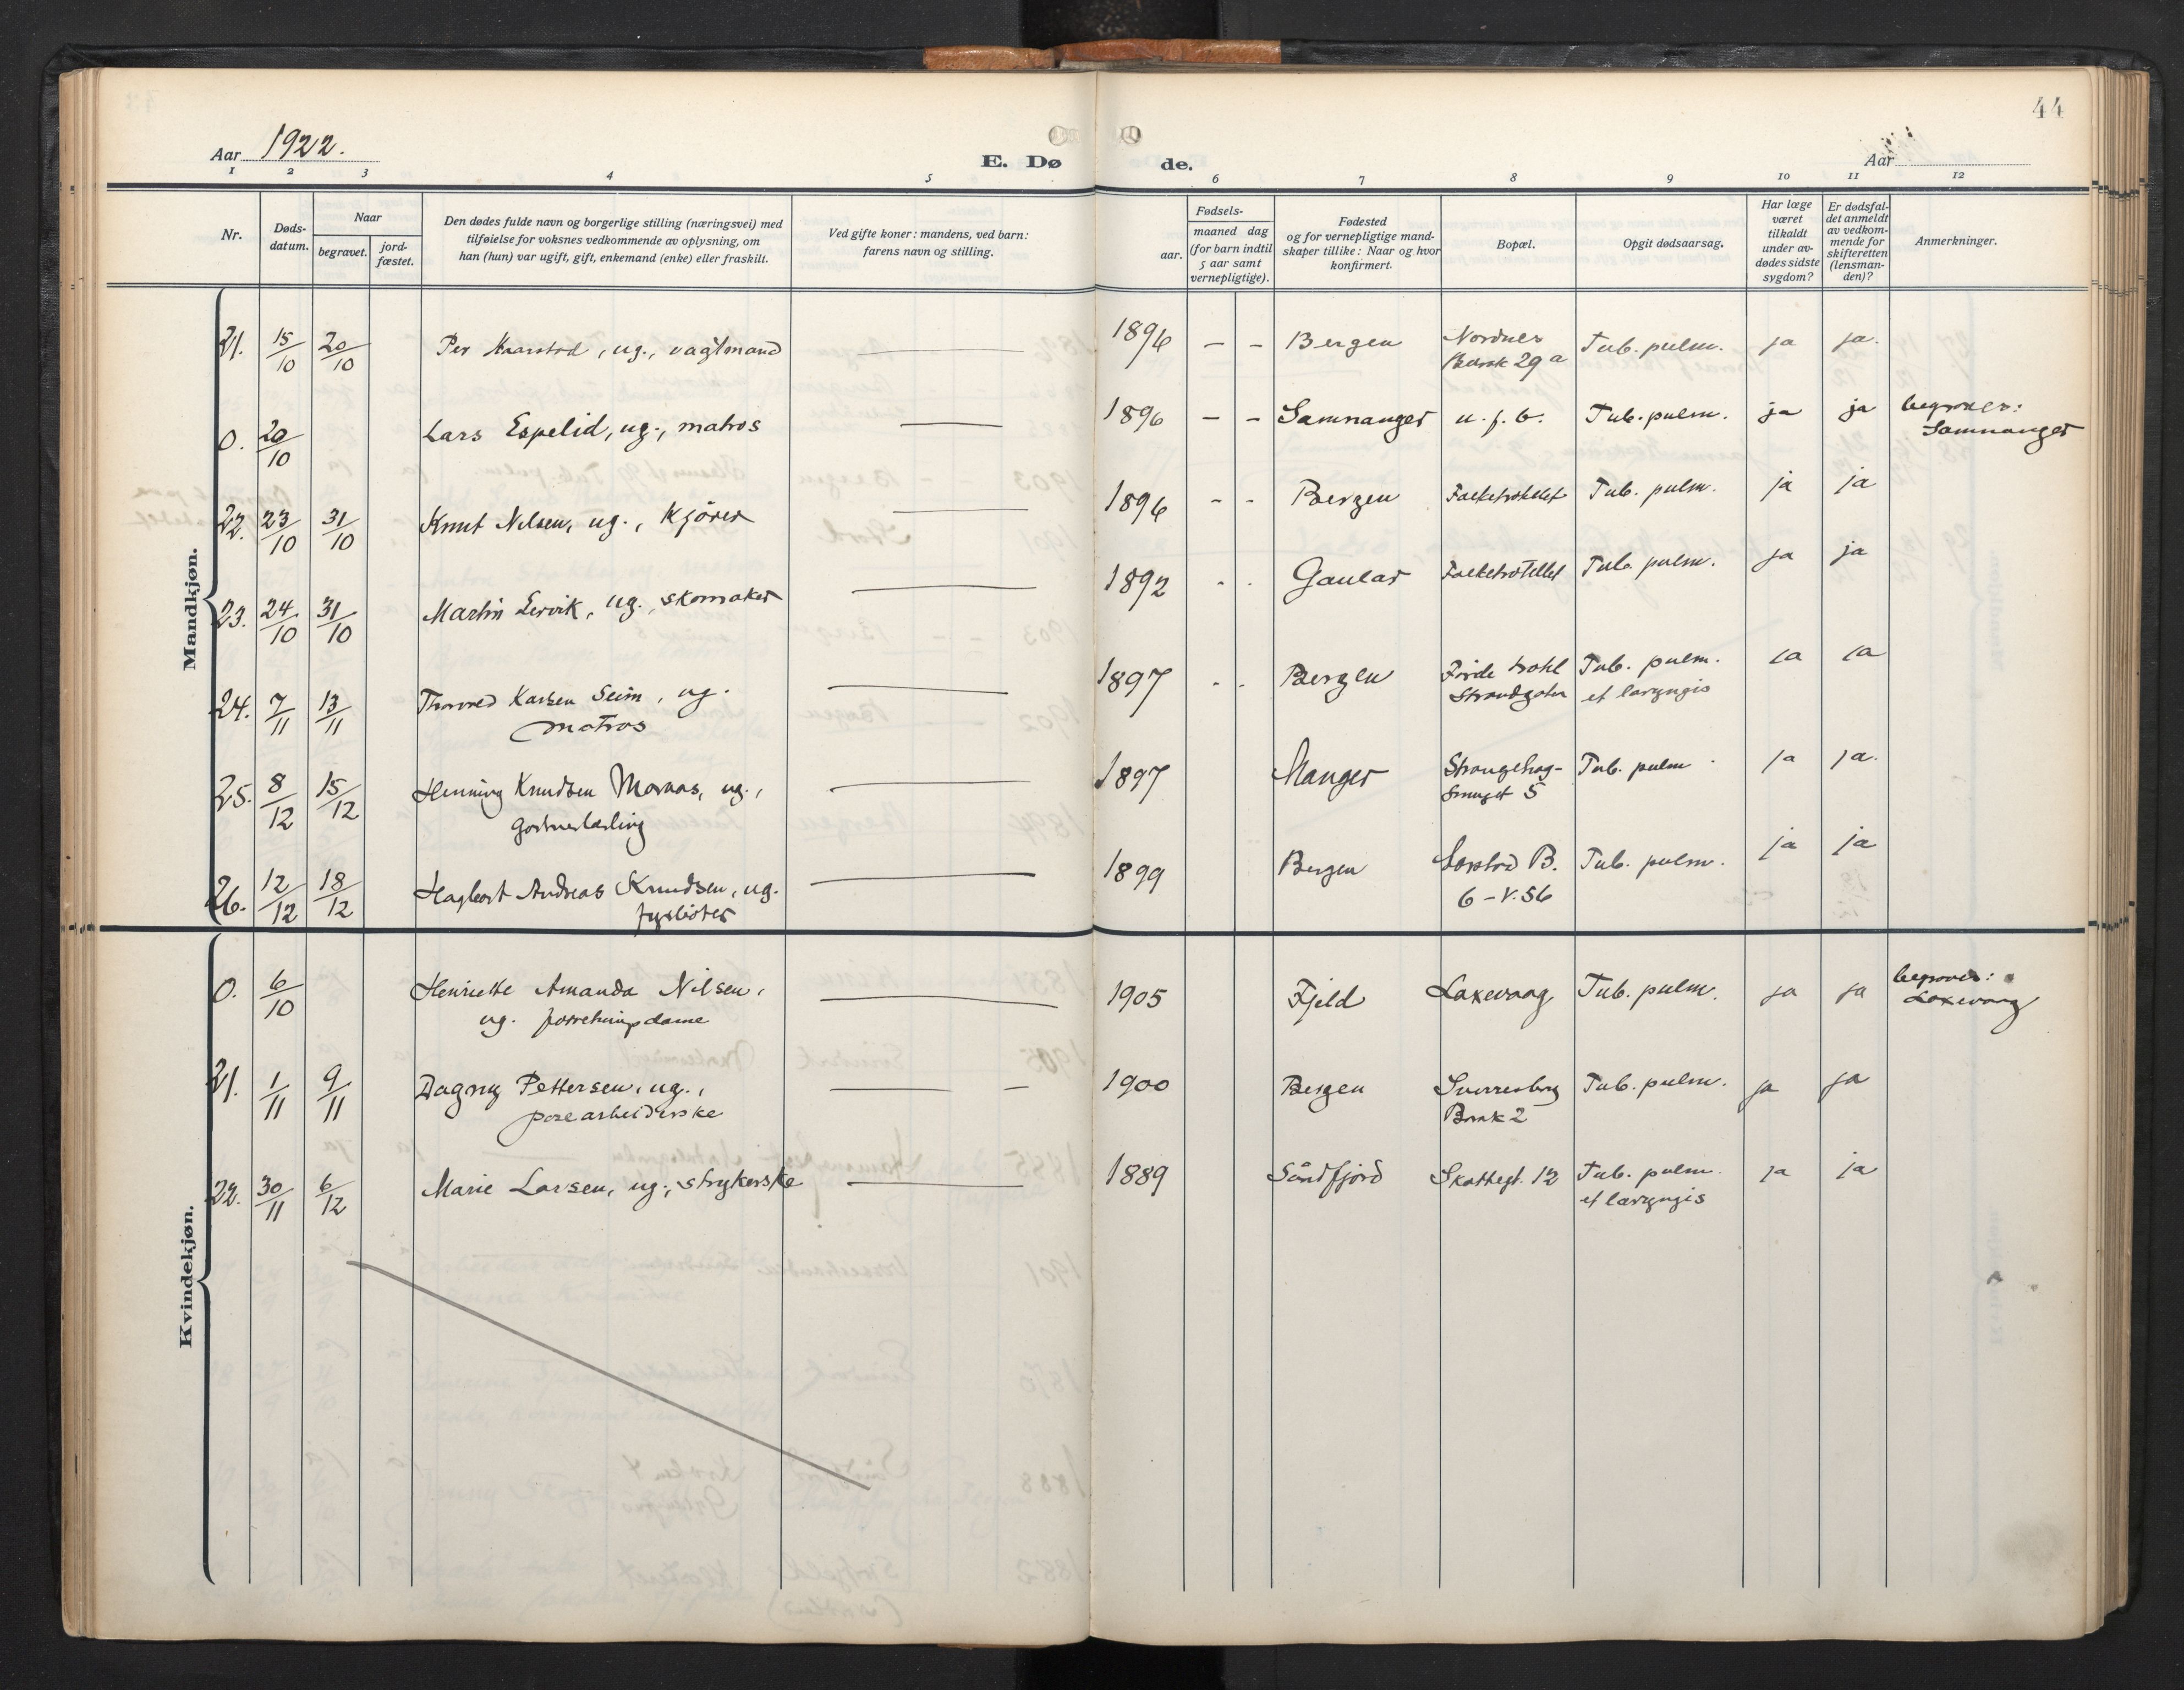 44
Aar 1922.
E. Dø
de.
Aar
1 2 3 4 5 6 7 8 9 10 11 12
Nr.
Døds-
datum.
Naar
begravet.
jord-
fæstet.
Den dødes fulde navn og borgerlige stilling (næringsvei) med
tilføielse for voksnes vedkommende av oplysning, om
han (hun) var ugift, gift, enkemand (enke) eller fraskilt.
Ved gifte koner: mandens, ved barn:
farens navn og stilling.
Fødsels-
aar.
maaned dag
(for barn indtil
5 aar samt
vernepligtige).
Fødested
og for vernepligtige mand-
skaper tillike: Naar og hvor
konfirmert.
Bopæl.
Opgit dødsaarsag.
Har læge
været
tilkaldt
under av-
dødes sidste
sygdom?
Er dødsfal-
det anmeldt
av vedkom-
mende for
skifteretten
(lensman-
den)?
Anmerkninger.
Mandkjøn.
21. 15/10 20/10 Per Kaarstad, ug., vagtmand — 1896 – – Bergen Nordnes Tub. pulm. ja ja.
Bakk 29a
0. 20/10 Lars Espelid, ug., matros — 1896 – – Samnanger u. f. b. Tub. pulm. ja ja begraves:
Samnanger
22. 23/10 31/10 Knut Nilsen, ug., Kjører — 1896 - - Bergen Tub. pulm. ja ja
23. 24/10 31/10 Martin Leirvik, ug., skomaker — 1892 - - Gaular Tub. pulm. ja ja
24. 7/11 13/11 Karsen Seim, ug. — 1897 - - Bergen Førde hotel Tub. pulm. ja ja
matros Strandgaten et laryngis
25. 8/12 15/12 Henning Knudsen ug., — 1897 Manger Strangehag- Tub. pulm. ja ja.
gartnerlærling smuget 5
26. 12/12 18/12 Hagbart Andreas Knudsen, ug. — 1899 Bergen B. Tub. pulm. ja ja
fyrbøter 6 – V. 56
Kvindekjøn.
0. 6/10 Henriette Amanda Nilsen, — 1905 Fjeld Laxevaag Tub. pulm. ja ja begraves:
ug. forretningsdame Laxevaag
21. 1/11 9/11 Dagny Pettersen, ug., — – 1900 Bergen Sverresborg Tub. pulm. ja ja
posearbeiderske Bakk 2
22. 30/11 6/12 Marie Larsen, ug., strykerske — 1889 Søndfjord Skottegt. 12 Tub. pulm. ja ja
et laryngis